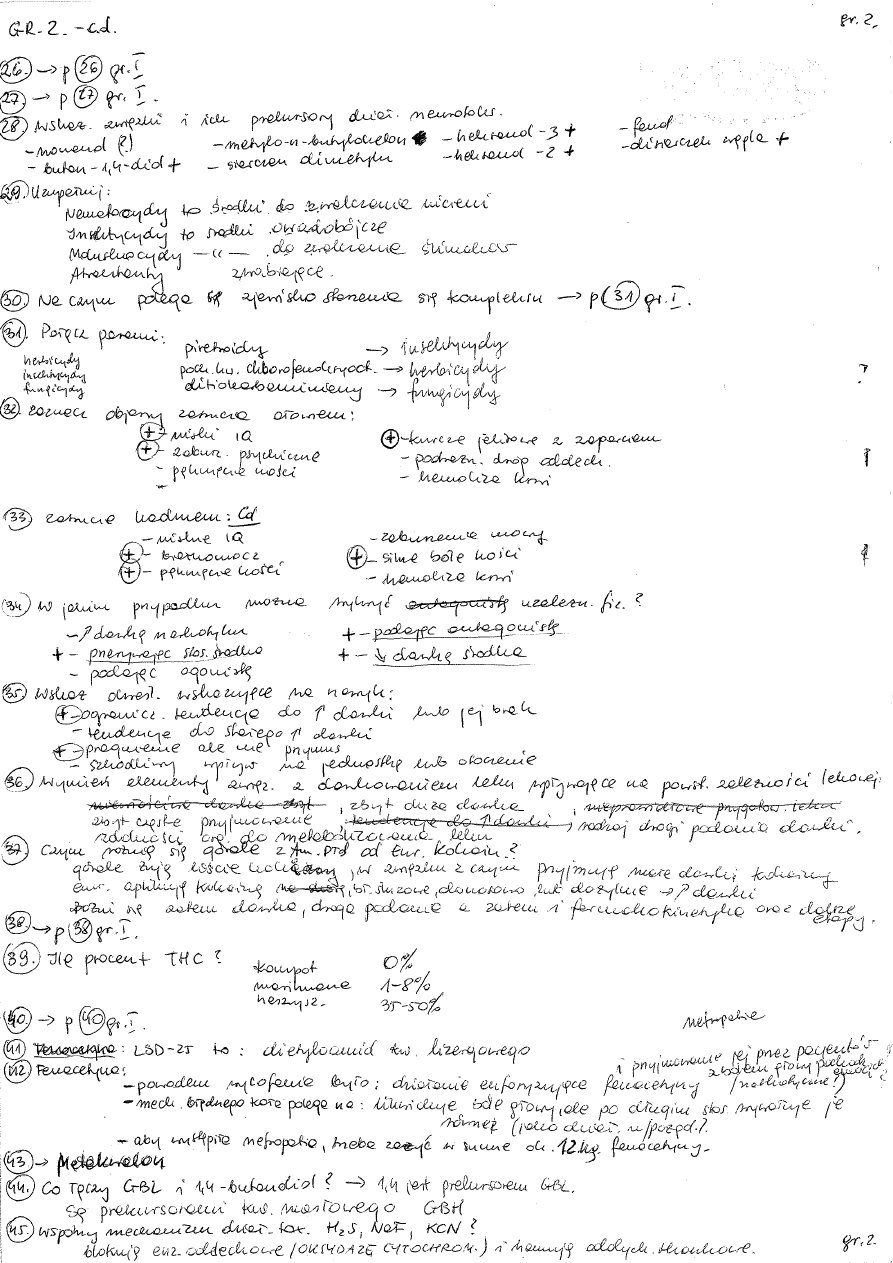 GR. 2. - c.d. gr. 2.
26. → p 26 gr. I
27. → p 27 gr. I.
28. wskaż. związki i ich prekursory dział. neurotoks.
- nonanol (?) - metylo-n-butyloketon - heksanol -3 + - fenol
- butan -1,4-diol + - siarczan dimetylu - heksanol -2 + - disiarczek węgla +
29. Uzupełnij:
Nematocydy to środki do zwalczania nicieni
Insektycydy to środki owadobójcze
Moluskocydy —"— do zwalczania ślimaków
Atraktanty zwabiające.
30. Na czym polega się zjawisko starzenia się kompleksu → p 31 gr. I.
31. Połącz parami:
piretroidy → insektycydy
herbicydy
insektycydy
fungicydy
poch. kw. chlorofenoksyoct. → herbicydy ?
ditiokarbaminiany → fungicydy
32. zaznacz objawy zatrucia ołowiem:
+ - niski IQ + - kurcze jelitowe z zaparciem
+ - zaburz. psychiczne - podrażn. dróg oddech. !
- pęknięcie kości - hemoliza krwi
-
33. zatrucie kadmem: Cd
- niskie IQ - zabarwienie moczu
+ - białkomocz + - silne bóle kości
+ - pęknięcie kości - hemoliza krwi
34. w jakim przypadku można wykryć antagonistę uzależn. fiz. ?
- ↑ dawkę narkotyku + - podając antagonistę
+ - przerywając stos. środka + - ↓ dawkę środka
- podając agonistę
35. Wskaż określ. wskazujące na nawyk:
+ - ogranicz. tendencja do ↑ dawki lub jej brak
- tendencja do stałego ↑ dawki
+ - pragnienie ale nie przymus
- szkodliwy wpływ na jednostkę lub otoczenie
36. Wymień elementy związ. z dawkowaniem leku wpływające na powst. zależności lekowej:
zbyt duża dawka, nieprawidłowe przygotow. leku
zbyt częste przyjmowanie, tendencja do ↑ dawki, rodzaj drogi podania dawki.
zdolności org. do metabolizowania leku
37. Czym różnią się górale z Am. Płd od Eur. Kokain.?
górale żują liście koki, w związku z czym przyjmują małe dawki kokainy
eur. aplikują kokainę, bł. śluzowe, donosowo, lub dożylnie → ↑ dawki
różni się zatem dawka, droga podania a zatem i farmakokinetyka oraz dalsze etapy.
38. → p 38 gr. I.
39. Ile procent THC ? kompot 0%
marihuana 1-8%
haszysz. 35-50%
40. → p 40 gr. I. nefropatie
41 Fenacetyna: LSD-25 to : dietyloamid kw. lizergowego
42 Fenacetyna: i przyjmowanie jej przez pacjentów z bólem głowy
- powodem wycofania było: działanie euforyzujące fenacetyny (narkotyczne?)
- mech. błędnego koła polega na: likwiduje bóle głowy, ale po długim stos. wywołuje je
również (jako dział. n/pożąd.).
- aby wystąpiła nefropatia, trzeba zażyć w sumie ok. 12 kg. fenacetyny.
43 → Metakwalon
44. Co łączy GBL i 1,4-butandiol ? → 1,4 jest prekursorem GBL.
Są prekursorami kw. masłowego GBH
45. wspólny mechanizm dział. tox. H₂S, NaF, KCN ?
blokują enz. oddechowe (OKSYDAZĘ CYTOCHROM.) i hamują oddych. tkankowe. gr. 2.